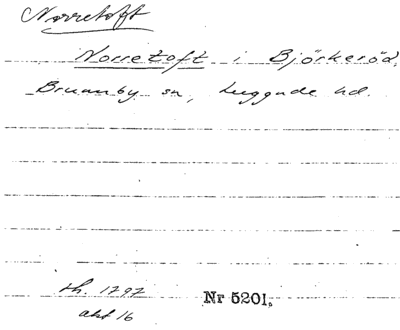 Norretoft
Norretoft i Björkeröd,
Brunnby sn, Luggude hd.
sh. 1797
akt 16
Nr 5201.